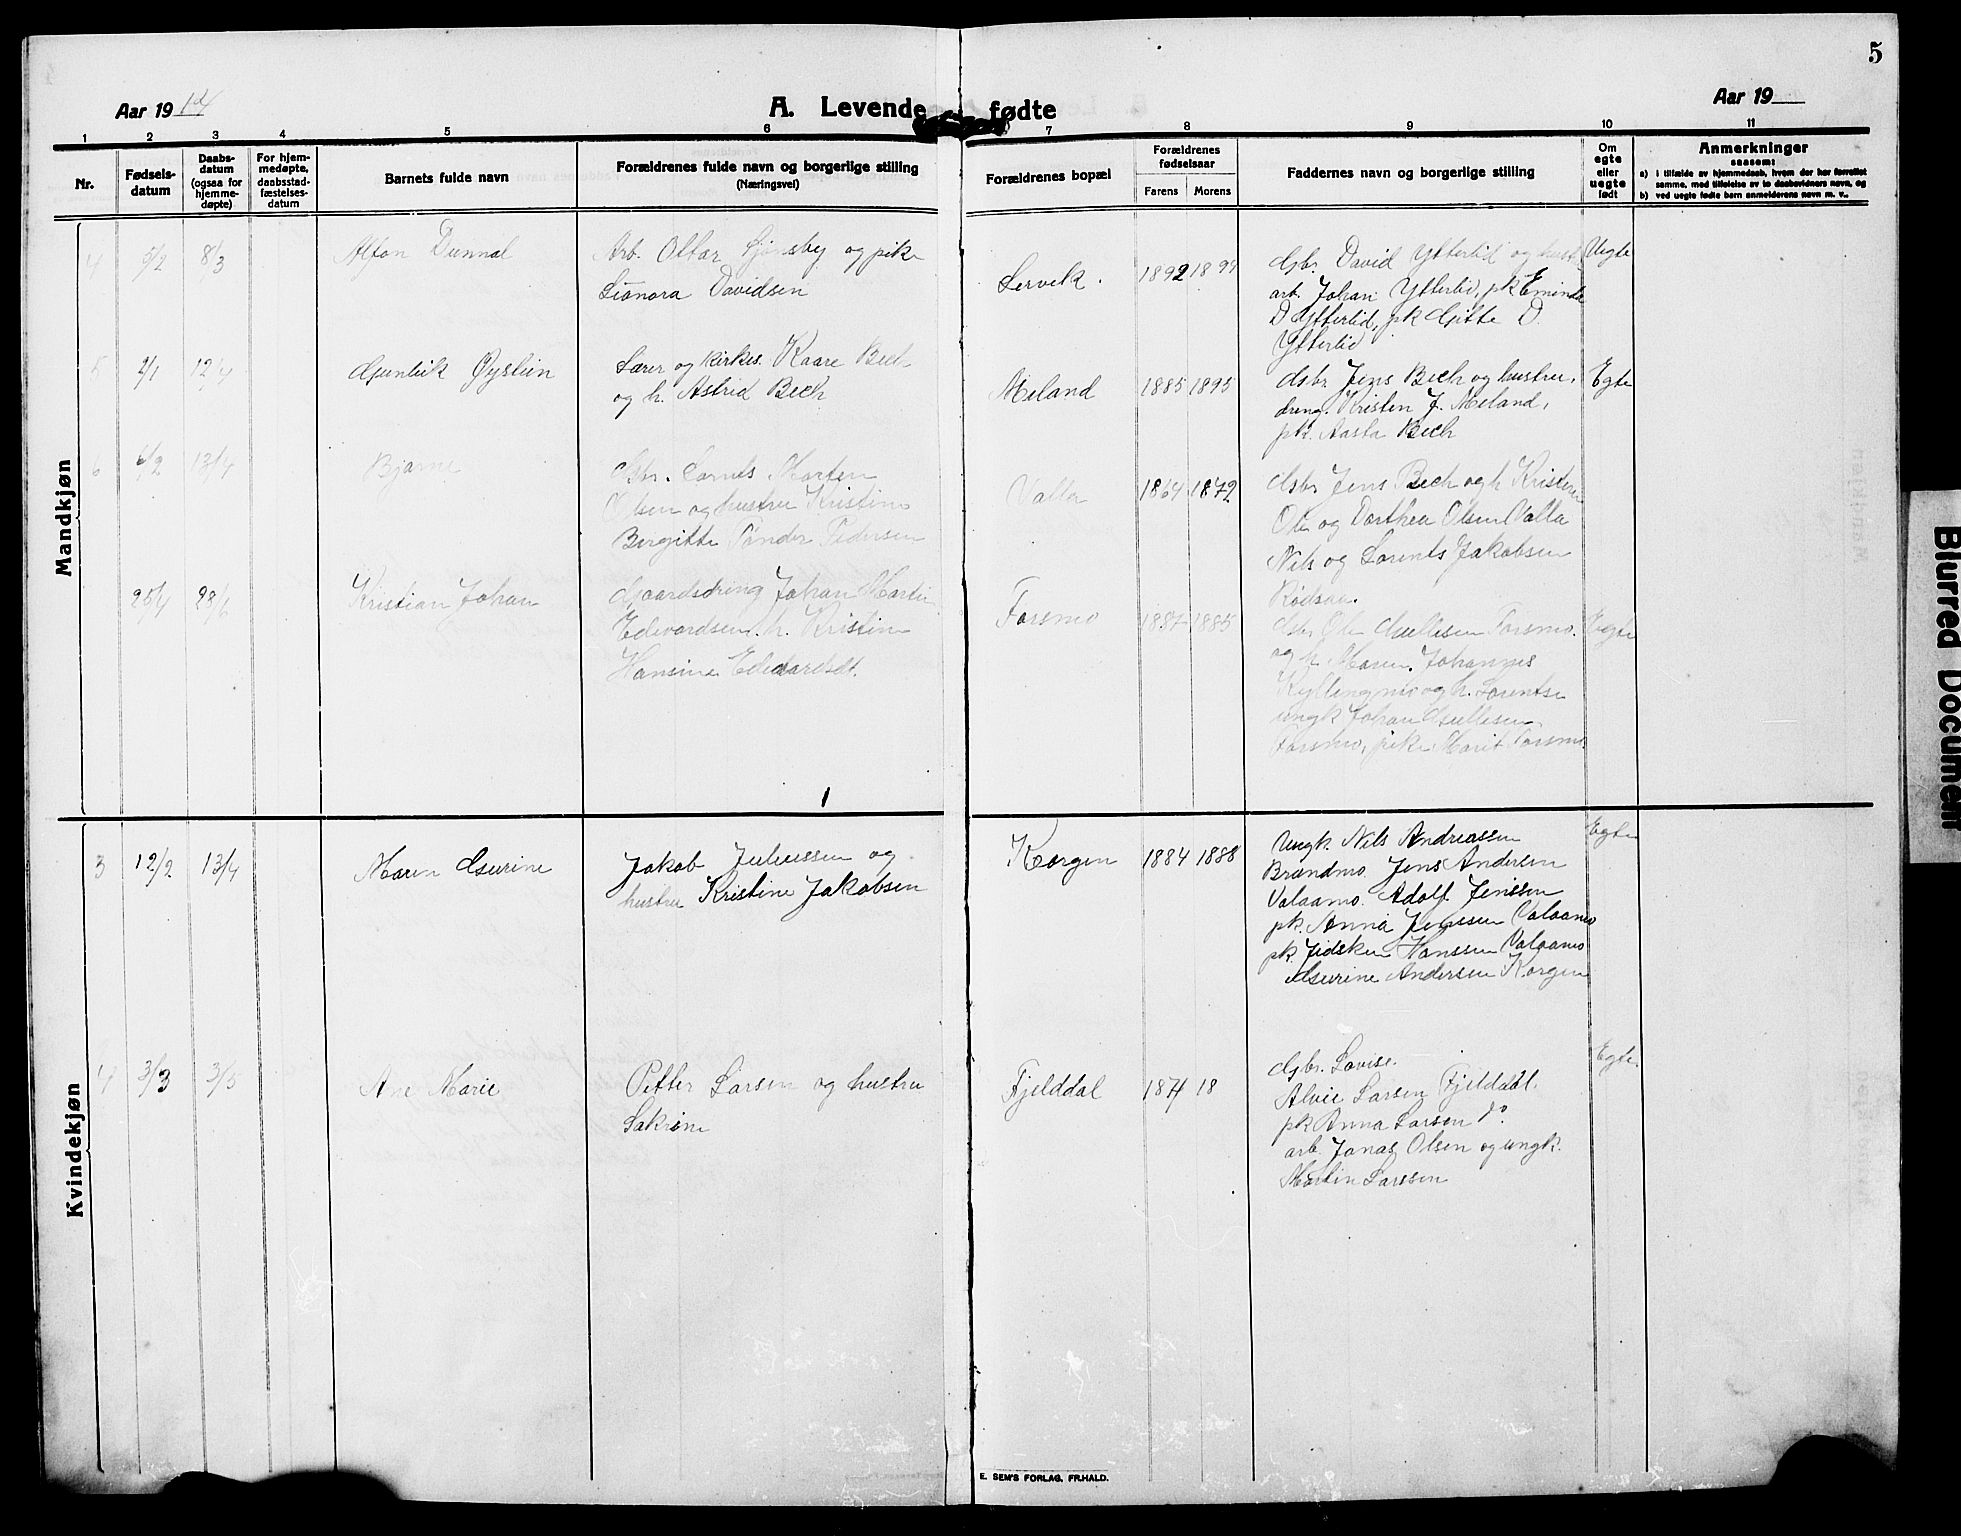 5
Aar 1914
A. Levende fødte
Aar 19
1 2 3 4 5 6 7 8 9 10 11
Nr.
Fødsels-
datum
Daabs-
datum
(ogsaa for
hjemme-
døpte)
For hjem-
medøpte,
daabsstad-
fæstelses-
datum
Barnets fulde navn
Forældrenes fulde navn og borgerlige stilling
(Næringsvei)
Forældrenes bopæl
Forældrenes
fødselsaar
Farens Morens
Faddernes navn og borgerlige stilling
Om
egte
eller
uegte
født
Anmerkninger
saasom:
a) i tilfælde av hjemmedaab, hvem der har forrettet
samme, med tilføielse av to daabsvidners navn, og
b) ved uegte fødte barn anmelderens navn m. v.
Mandkjøn
4 5/2 8/3
Alfon Dunnal
Arb. Ottar og pike
Leonora Davidsen
Lervik.
1892 1894
Gbr. David Ytterlid og hust.
arb. Johan Ytterlid, pk Eminda
D Ytterlid, pk Gitte D.
Ytterlid
Uegte
5 2/1 12/4
Gunleik Øystein
Lærer og kirkes. Kaare Bech
og h. Astrid Bech
Meland
1885 1895
Gsbr Jens Bech og hustru,
dreng. Kristen J. Meland,
pk. Aasta Bech
Egte
6 6/2 13/4
Bjarne
Gbr. Lornts Morten
Olsen og hustru Kristine
Bergitte Tønder Pedersen
Valla
1864 1872
Gsbr Jens Bech og h Kristine
Ole og Dorthea Olsen Valla
Nils og Lorents Jakobsen
Rødsaa.
25/4 28/6
Kristian Johan
Gaardsdreng Johan Martin
Edevardsen. h. Kristine
Hansine Edevardsdt.
Forsmo
1887 1885
Gsbr Ole Gullesen Forsmo.
og h. Maren. Johannes
Kyllingmo og h. Lorentse
ungk Johan Gullesen
Forsmo, pike Marit Forsmo
Uegte
Kvindekjøn
3 12/2 13/4
Maren Gurine
Jakob Juliussen og
hustru Kristine Jakobsen
Korgen
1884 1888
Ungk. Nils Andreassen
Brændmo Jens Andersen
Valaamo. Adolf Jenssen
pk. Anna Jenssen Valaamo
pk. Hanssen Valaamo
Gurine Andersen Korgen
Egte
4 3/3 3/5
Ane Marie
Petter Larsen og hustru
Sakrine
Fjelddal
1874 18
Gbr. Lovise.
Larsen Fjelddal.
pk Anna Larsen do.
arb. Jonas Olsen og ungk.
Martin Larssen
Egte
E. SEM'S FORLAG, FR.HALD.
Blurred Document